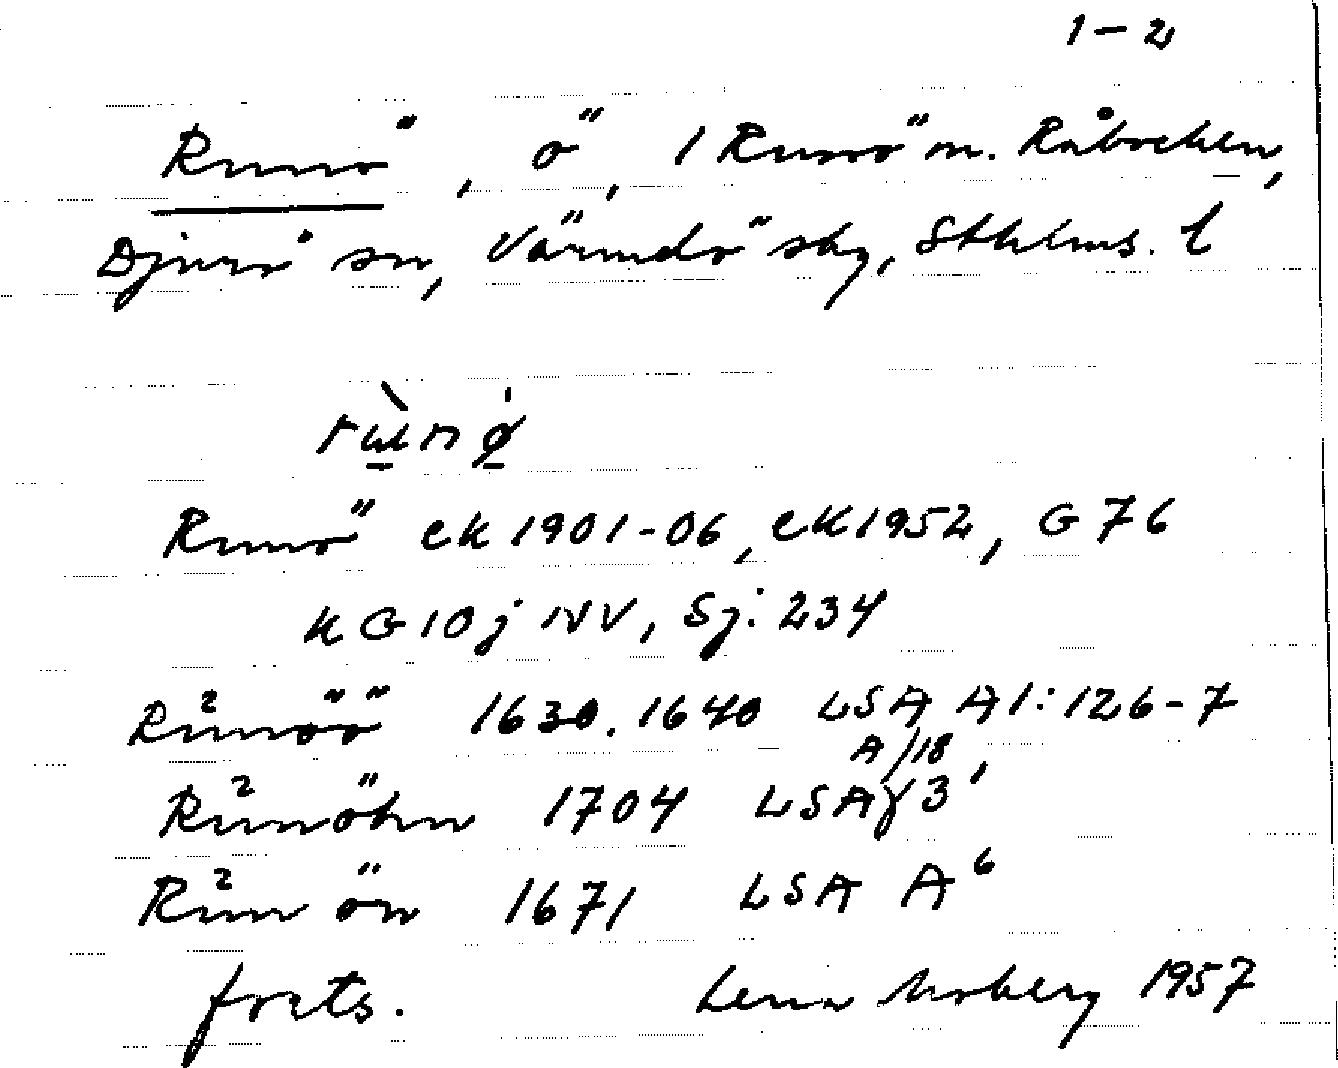 1-2
Runö, ö, 1 Runö m. Råbocken,
Djurö sn, Värmdö skg, Sthlms. l
rùnǿ
Runö ek 1901-06, ek 1952, G 76
KG 10j NV, Sj: 234
Runöö 1630. 1640 LSA A1:126-7
Runöhn 1704 LSA A/18, 3
Run ön 1671 LSA A6
forts. Lena Moberg 1957